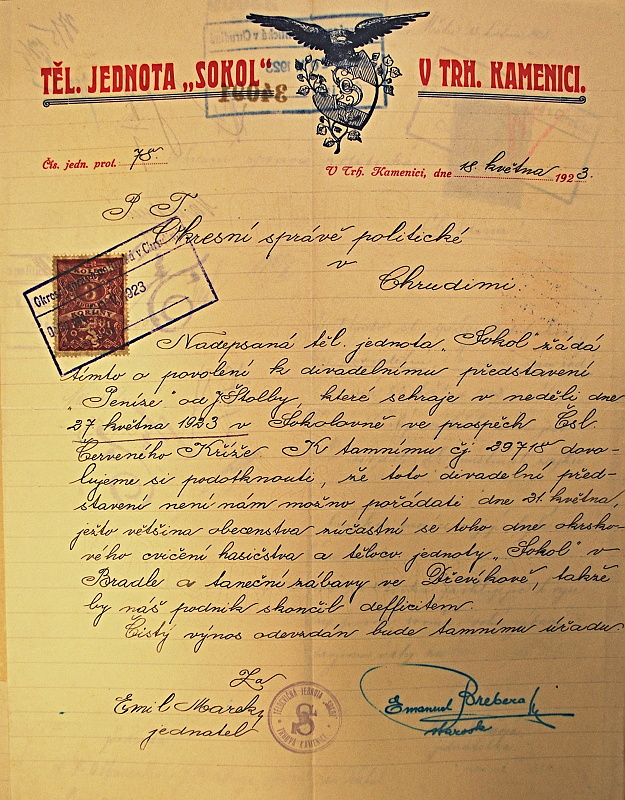 TĚL. JEDNOTA „SOKOL“ V TRH. KAMENICI.
34091
Čís. jedn. prot. 78.
V Trh. Kamenici, dne 18. května 1923.
P. T.
Okresní správě politické
v
Chrudimi
Nadepsaná těl. jednota „Sokol“ žádá
tímto o povolení k divadelnímu představení
„Peníze“ od J. Štolby, které sehraje v neděli dne
27 května 1923 v Sokolovně ve prospěch Čsl.
Červeného Kříže K tamnímu čj. 29718 dovo-
lujeme si podotknouti, že toto divadelní před-
stavení není nám možno pořádati dne 21. května,
ježto většina obecenstva zúčastní se toho dne okrsko-
vého cvičení hasičstva a tělocv. jednoty „Sokol“ v
Bradle a taneční zábavy ve Dřevíkově, takže
by náš podnik skončil defficitem.
Čistý výnos odevzdán bude tamnímu úřadu.
Za
Emil Marek
jednatel
TĚLOCVIČNÁ JEDNOTA „SOKOL“
TRHOVÁ KAMENICE
Emanuel Brebera
starosta